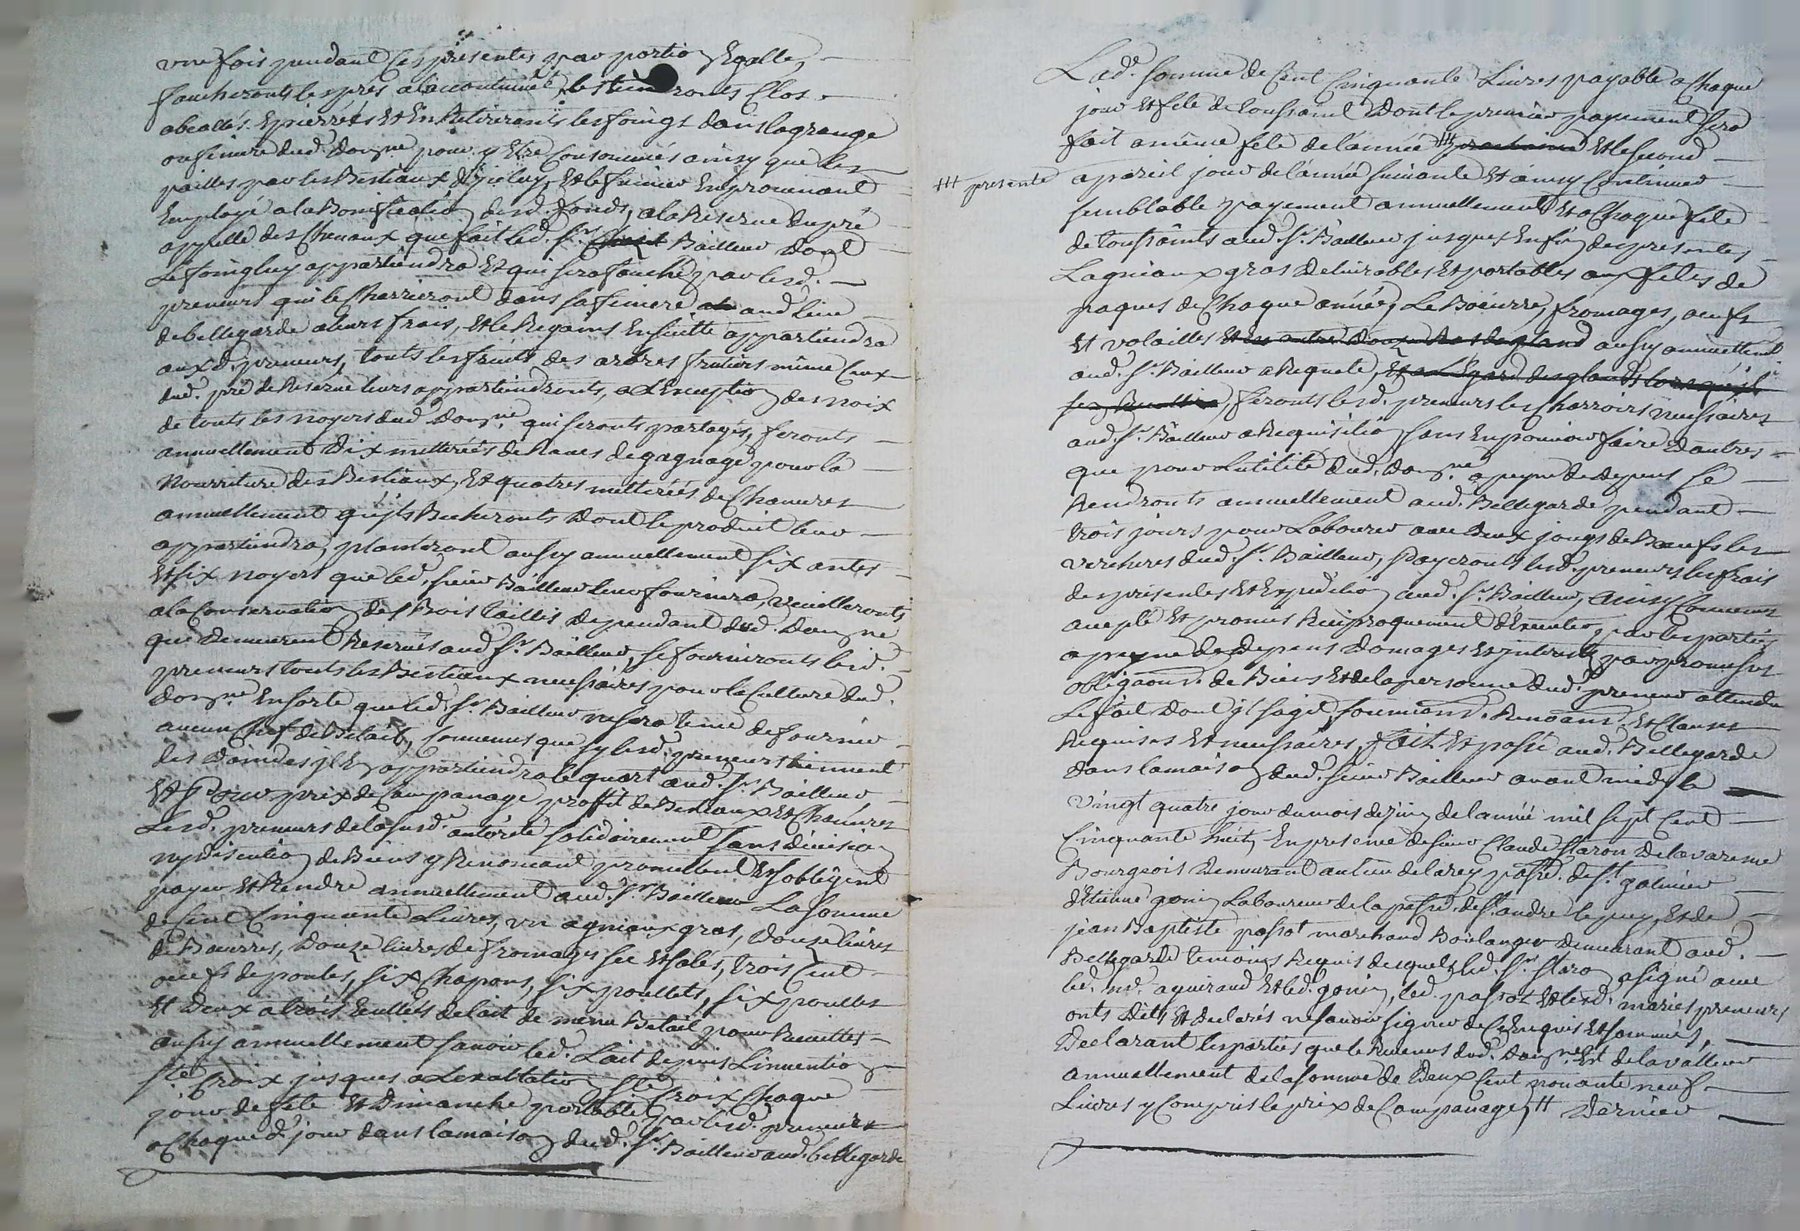 une fois pendant les presentes par portion Egalle,
faucheronts les prés a laccoutumé, les tiendronts Clos
abealés Epierrés Et En Retireronts les foings dans lagrange
ou feniere dud. Domne pour y Etre Consommés ainsy que les
pailles par les Bestiaux d'yceluy, Et le fumier En provenant
Employé a la Bonification desd. fonds, a la Réserve du pré
appellé des Chevaux que fait led. Sr. Bailleur dont
Le foing luy appartiendra Et qui sera fauché par lesd.
preneurs qui le Charrieront dans sa feniere aud. lieu
de bellegarde a leurs frais, Et le Regains Ensuitte appartiendra
auxd. preneurs, touts les fruits des arbres fruitiers même Ceux
dud. pré de Réserve leurs appartiendronts, a L'Exception des noix
de touts les noyers dud. Domne. qui seronts partagés, feronts
annuellement Dix metterées de Raves de gagnage pour la
Nourriture des Bestiaux, Et quatres metterées de Chanvres
annuellement qu'ils Becheronts Dont le produit leur
appartiendra, planteront aussy annuellement six antes
Et six noyers que led. sieur Bailleur leur fournira, veilleronts
a la Conservation des Bois taillis Dependant dud. Domne
qui Demeurent Reservés aud. Sr. Bailleur, se fourniront lesd.
preneurs touts les Bestiaux necessaires pour la Culture dud.
Domne. En sorte que led. Sr. Bailleur ne sera tenu de fournir
aucun Chef de Betail, Convenus que sy lesd. preneurs tiennent
des Dindes il En appartiendra le quart aud. Sr. Bailleur
Et Pour prix de Campanage proffit de Bestiaux Et Chanvres
Lesd. preneurs de lasusd. autorité solidairement sans division
ny Discution de Biens y Renonçant promettent Et s'obligent
payer Et Rendre annuellement aud. Sr. Bailleur La somme
de Cent Cinquante Livres, un agniaux gras, Douze livres
de Bœurres, Douze livres de fromages sec Et salés, trois Cent
œufs de poules, six Chapons, six poullets, six poulles
Et Deux a trois seullées de lait de menu Betail pour Recuittes
aussy annuellement savoir led. Lait depuis Linvention
Ste. Croix jusques a Lexaltation Ste. Croix Chaque
jour de fête Et Dimanche portable par lesd. preneurs
a Chaque d. jour dans la maison dud. Sr. Bailleur aud. bellegarde
Lad. somme de Cent Cinquante Livres payable a Chaque
jour Et fête de toussaint Dont le premier payement sera
fait a même fête de l'année # prochaine Et le second
# presente
a pareil jour de l'année suivante Et ainsy Continuer
semblable payement annuellement Et a Chaque fête
de toussaints aud. Sr. Bailleur jusques En fin des presentes,
Lagniaux gras Delivrables Et portables aux fêtes de
paques de Chaque année, Le Bœurre, fromages, œufs
Et volailles aussy annuellemt.
aud. Sr. Bailleur a Requete,
feronts lesd. preneurs les Charroirs necessaires
aud. Sr. Bailleur a Requisition sans En pouvoir faire Dautres
que pour Lutilité dud. Domne. a peyne de depens se
Rendronts annuellement aud. Bellegarde pendant
trois jours pour Labourer avec Deux jougs de Bœufs les
vercheres dud. Sr. Bailleur, Payeronts lesd. preneurs les frais
des presentes Et Expedition aud. Sr. Bailleur, Ainsy Convenu
accepté Et promis Reciproquement d'Executer par les parties
a peyne de depens Domages Et interests par promesses
obligaons. de Biens Et de la personne dud. preneur attendu
Le fait Dont il s'agit, soumions. Renoans. Et Clauses
Requises Et necessaires, fait Et passé aud. Bellegarde
dans la maison dud. sieur Bailleur avant midy le
vingt quatre jour du mois de juin de l'année mil sept Cent
Cinquante huit, En presence de sieur Claude Staron Delavarenne
Bourgeois Demeurant au lieu de larey paroisse de St. galmier
d'Etienne gonin Laboureur de la parsse. de St. andré le puy, Et de
jean Baptiste passot marchand Boulanger demeurant aud.
Bellegarde temoins Requis desquels led. Sr. Staron a signé avec
led. Me. aguiraud Et led. gonin, led. passot Et lesd. mariés preneurs
onts Dits Et Declarés ne savoir signer de Ce Enquis Et sommés,
Declarant les parties que le Revenus dud. Domne. Est de la valleur
annuellement de la somme de Deux Cent nonante neuf
Livres y Compris le prix de Campanage, # Dernier